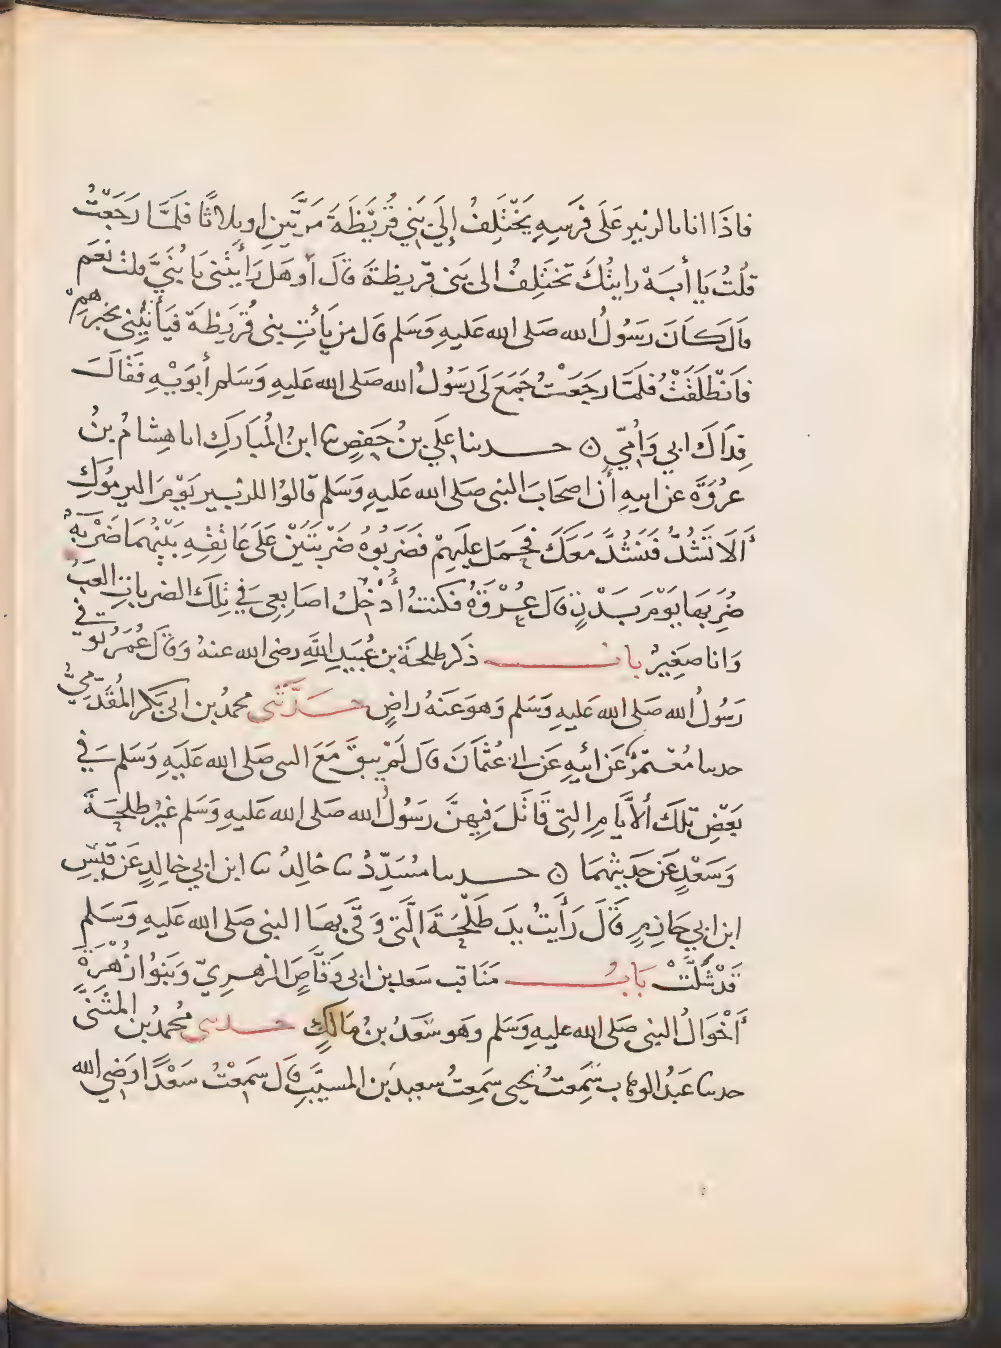 فاذا انا بالزبير عَلَى فَرَسِهِ يَخْتَلِفُ إِلَىٰ بَنِي قُرَيْظَةَ مَرَّتَيْنِ او ثلاثًا فَلَمَّا رَجَعْتُ
قُلْتُ يَا أَبَهْ رايتُكَ تَخْتَلِفُ الى بنى قريظةَ قَالَ أَوَهَلْ رَأَيْتَنِى يَا بُنَيَّ قلتُ نَعَم
قال كَانَ رَسُولُ الله صَلى الله عَليهِ وَسَلم قال مَن يَأتِ بنى قُرَيظةَ فيَأتِيُنِى بخبرهِم
فَانْطَلَقْتُ فَلَمَّا رجَعْتُ جَمَعَ لى رَسُولُ الله صَلى الله عَليهِ وَسَلم أبَوَيْهِ فَقَالَ
فِدَاكَ ابي وَأُمِّي ۝ حدثنا عَلي بنُ حَفصٍ ثنا ابنُ المُبارَكِ انا هِشامُ بنُ
عُروَةَ عن ابيهِ أن اصحَابَ النبى صَلى الله عليهِ وَسَلم قالوُا للزبَير يَوْمَ اليرموُكِ
أَلَا تَشُدُّ فَنَشُدَّ مَعَكَ فحَمَل عليهِمْ فضَرَبوُهُ ضَرْبَتَيْنِ عَلَى عَاتِقِهِ بَيْنَهُمَا ضَرْبَةٌ
ضُرِبَهَا يَوْمَ بَدْرٍ قال عُرْوَةُ فكنتُ أُدْخِلُ اصَابعِي في تِلكَ الضرباتِ العَبُ
وَانا صَغِيرٌ بابـــ ذكر طلحةَ بن عُبَيدِ اللهِ رضى الله عنهُ وَقال عُمَرُ توفى
رَسُولُ الله صَلى الله عليهِ وَسَلم وَهوَ عَنهُ راضٍ حَـدَّثَنى محمدُ بن ابى بَكر المُقَدَّمِيُّ
حدثنا مُعْتَمِرٌ عَن ابيهِ عَن ابى عُثمَانَ قال لَمْ يبقَ مَعَ النبى صَلى الله عَلَيهِ وَسَلم في
بَعْضِ تلكَ الأَيَامِ التِى قَاتَلَ فِيهِنَّ رَسُولُ الله صَلى الله عَليهِ وَسَلم غَيْرُ طلحَةَ
وَسَعْدٍ عَن حَدِيثِهمَا ۝ حدثنا مُسَدَّدٌ ثنا خالدٌ ثنا ابن ابي خالدٍ عَن قَيْسِ
ابن ابي حَازمٍ قَالَ رَأَيْتُ يدَ طَلْحَةَ الَّتِى وَقَى بهَا النبى صَلى الله عَليهِ وَسَلم
قَدْ شُلَّتْ بَابُـــ مَنَاقب سَعد بن ابى وَقَّاصٍ الزهرِيّ وَبَنوُا زُهْرَةَ
أَخْوَالُ النبى صَلى الله عليهِ وَسَلم وهوَ سَعْدُ بنُ مَالكٍ حـدثنى محُمدُ بن المثنى
حدثنا عَبدُ الوهاب سَمِعتُ يَحيى سَمِعتُ سعيدَ بن المسيَّبِ قال سَمِعْتُ سَعْدًا رَضِي الله